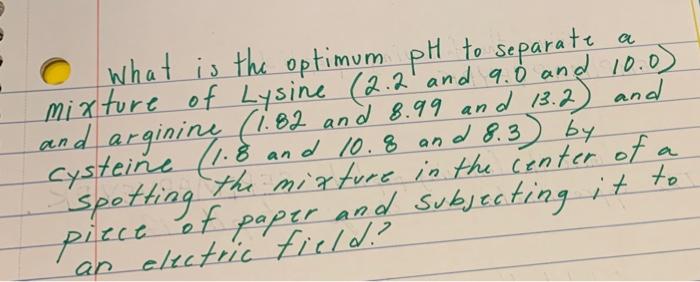 What is the optimum pH to separate a
mixture of Lysine (2.2 and 9.0 and 10.0)
and arginine (1.82 and 8.99 and 13.2) and
cysteine (1.8 and 10.8 and 8.3) by
spotting the mixture in the center of a
piece of paper and subjecting it to
an electric field?